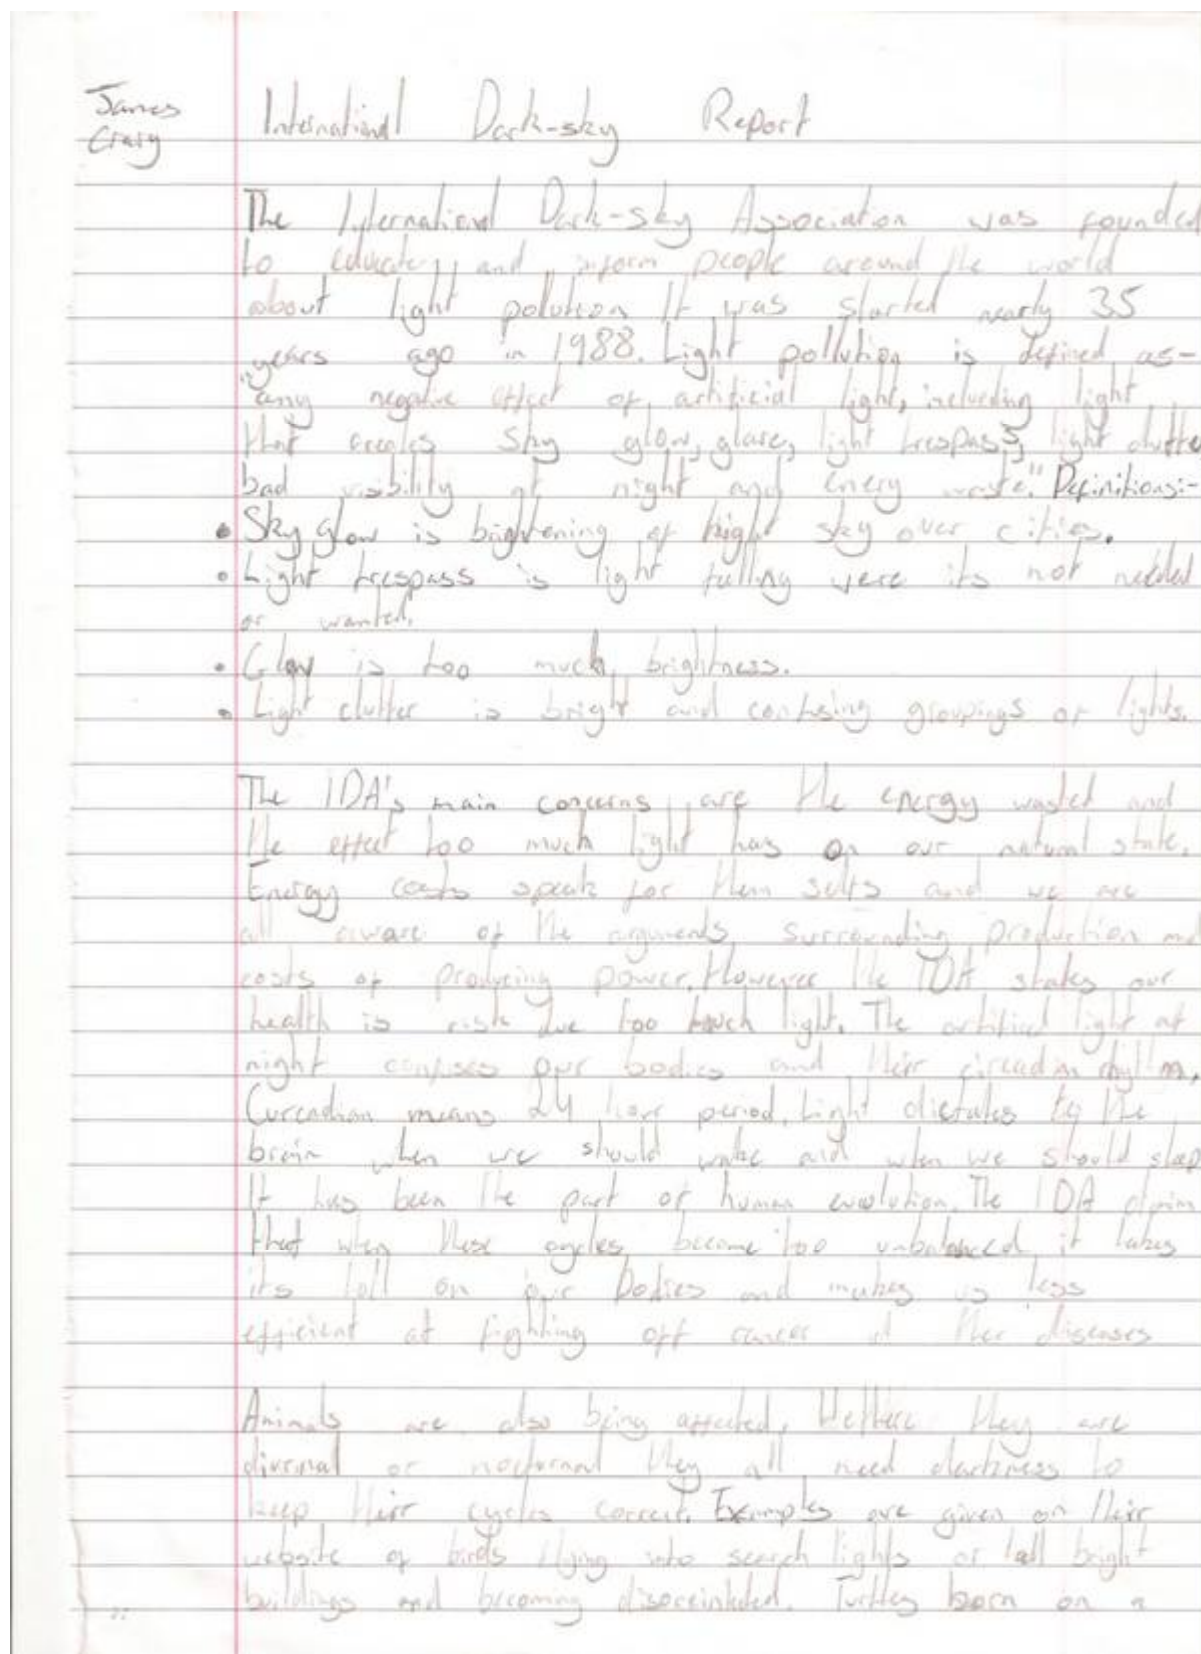 James
Craig
International Dark-sky Report
The International Dark-sky Association was founded
to educate, and inform people around the world
about light polution It was started nearly 35
years ago in 1988. Light pollution is defined as-
"any negative effect of artificial light, including light
that creates sky glow, glare, light trespass, light clutter
bad visibility at night and enery waste." Definitions:-
• Sky glow is brightening of night sky over cities.
• Light trespass is light falling were its not needed
or wanted.
• Glow is too much brightness.
• Light clutter is bright and confusing groupings of lights.
The IDA's main concerns are the energy wasted and
the effect too much light has on our natural state.
Energy costs speak for them selfs and we are
all aware of the arguments surrounding production and
costs of producing power. However the IDA states our
health is risk due too much light. The artificial light at
night confuses our bodies and their circadian rhythm.
Curcadian means 24 hour period. Light dictates to the
brain when we should wake and when we should sleep
It has been the part of human evolution. The IDA claim
that when these cycles become too unbalanced it takes
its toll on our bodies and makes us less
efficient at fighting off cancer diseases
Animals are also being affected. they are
diurnal or nocturnal they all need darkness to
keep their cycles correct. Examples are given on their
website of birds flying into search lights or tall bright
buildings and becoming Turtles born on a